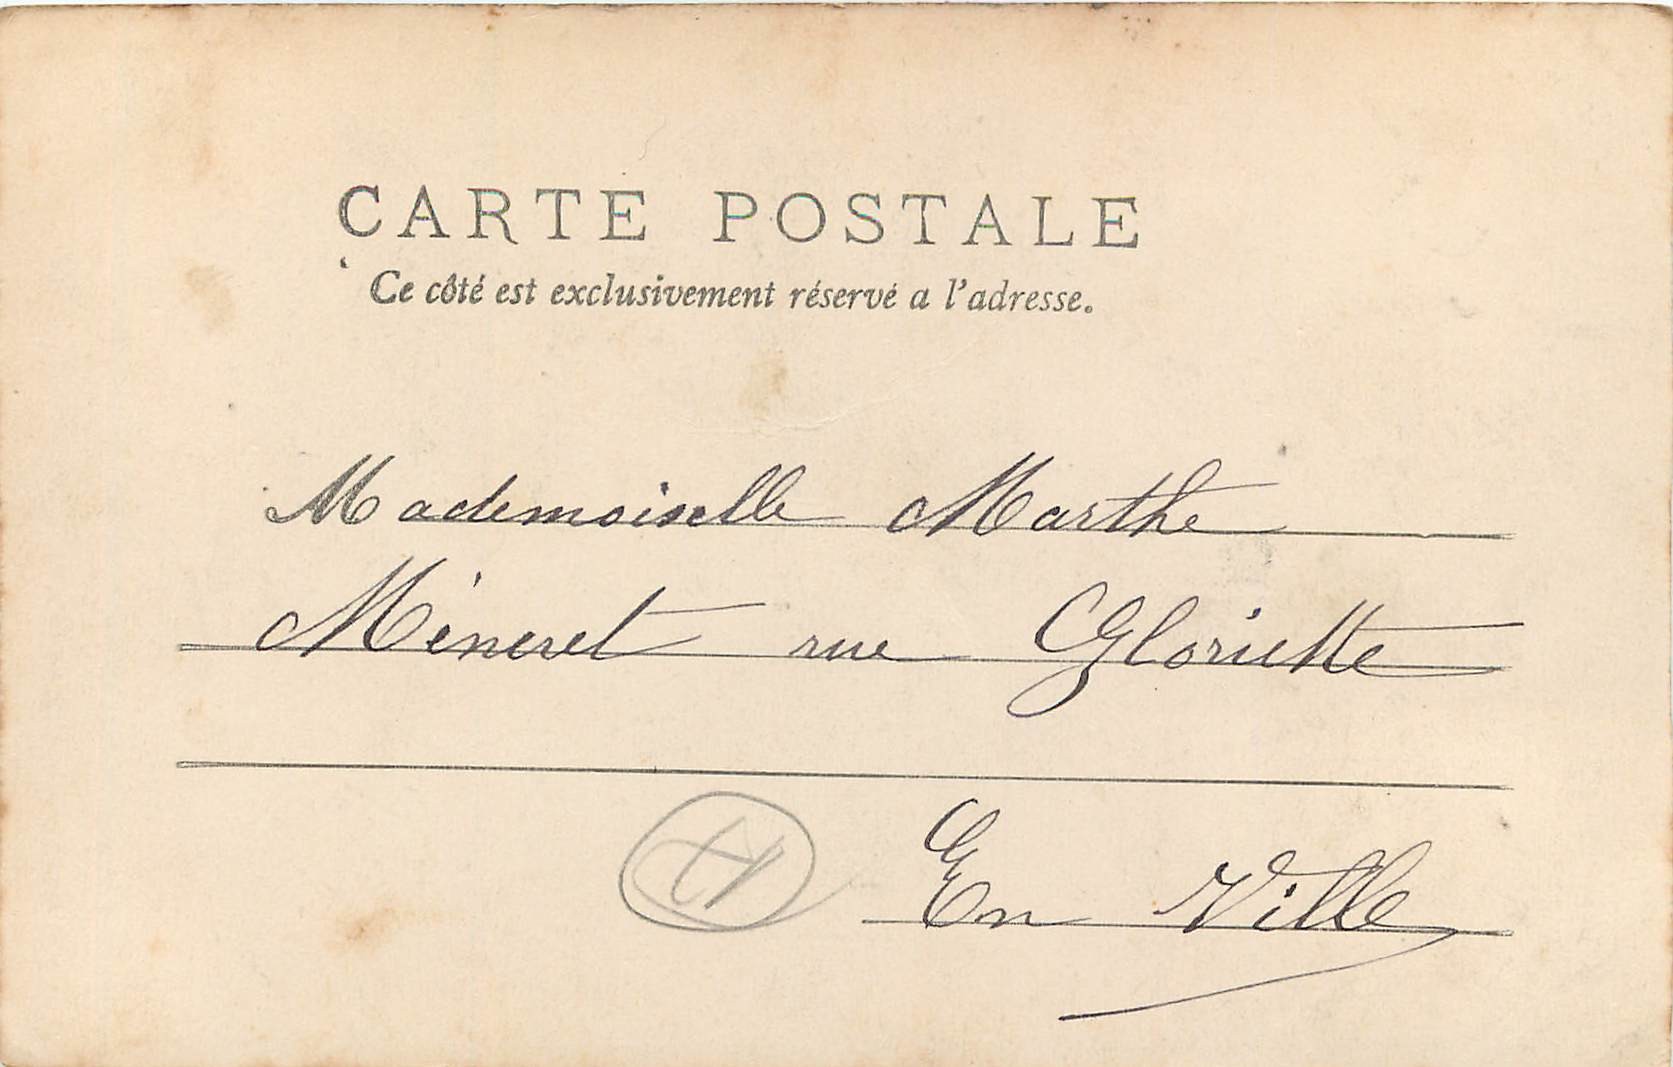 CARTE POSTALE
Ce côté est exclusivement réservé a l'adresse.
Mademoiselle Marthe
Méneret rue Gloriette
En Ville